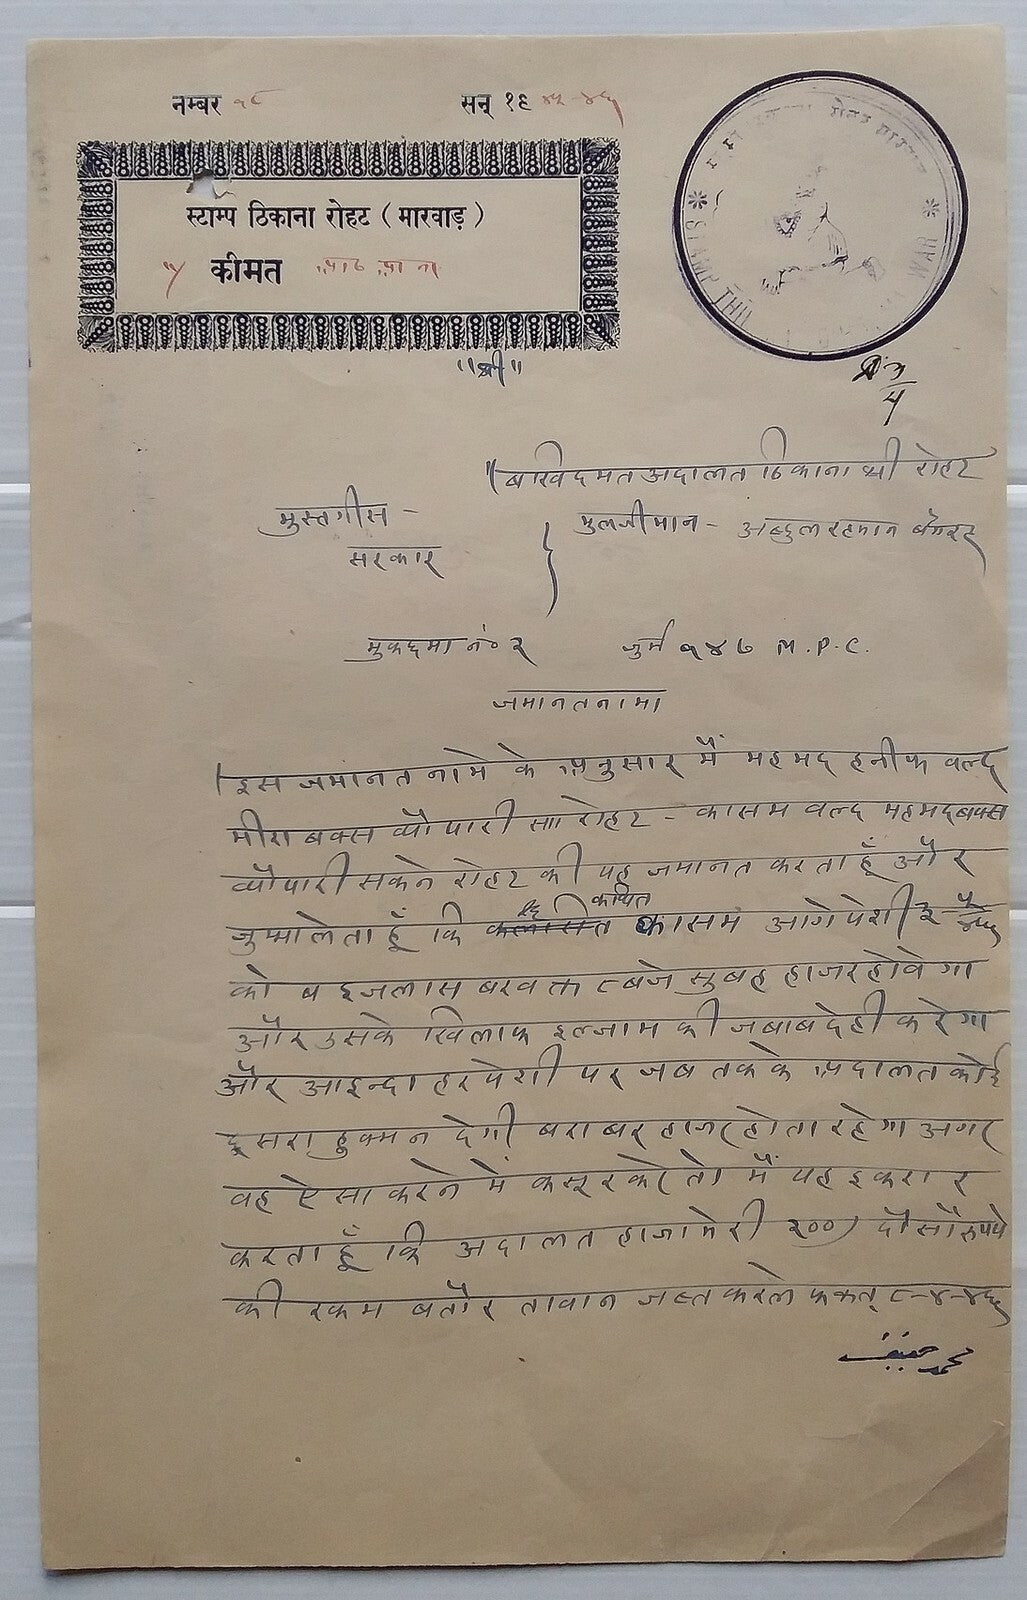 नम्बर १८ सन् १९ ४५-४६
स्टाम्प ठिकाना रोहट ( मारवाड़ )
कीमत आठ आना
STAMP THI WAR
"श्री"
बखिदमत अदालत ठिकाना श्री रोहट
मुस्तगीस - मुलजीमान - अब्दुल रहमान वगैरह
सरकार
मुकद्दमा नं० २ जुर्म १४७ M. P. C.
जमानतनामा
इस जमानत नामे के अनुसार मैं महमद हनीफ वल्द
मीरा बक्स व्यौपारी सा। रोहट - कासम वल्द महमदबक्स
व्यौपारी सकने रोहट की यह जमानत करता हूँ और
जुम्मा लेता हूँ कि कथित कासम आगे पेशी
को ब इजलास बरवक्त ८ बजे सुबह हाजर होवेगा
और उसके खिलाफ इल्जाम की जबाब देही करेगा
और आइन्दा हर पेशी पर जब तक के अदालत कोई
दुसरा हुक्म न देगी बराबर हाजर होता रहेगा अगर
वह ऐसा करने में कसूर करे तो मैं यह इकरार
करता हूँ कि अदालत हाजा मेरी २००) दौ सौ रुपये
की रकम बतौर तावान जब्त करले फकत् ८-४-४६
محمد حنیف